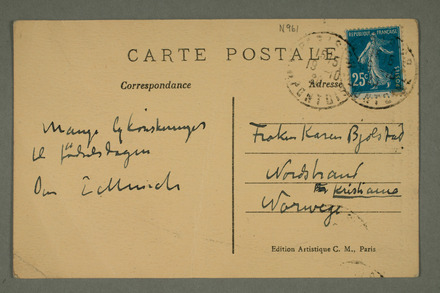 N961
CARTE POSTALE
Correspondance
Adresse
REPUBLIQUE FRANÇAISE
25c
POSTES
Mange lykønskninger
til fødselsdagen
Frøken Karen Bjølstad
Nordstrand
pr Kristiania
Norwege
Edition Artistique C. M., Paris